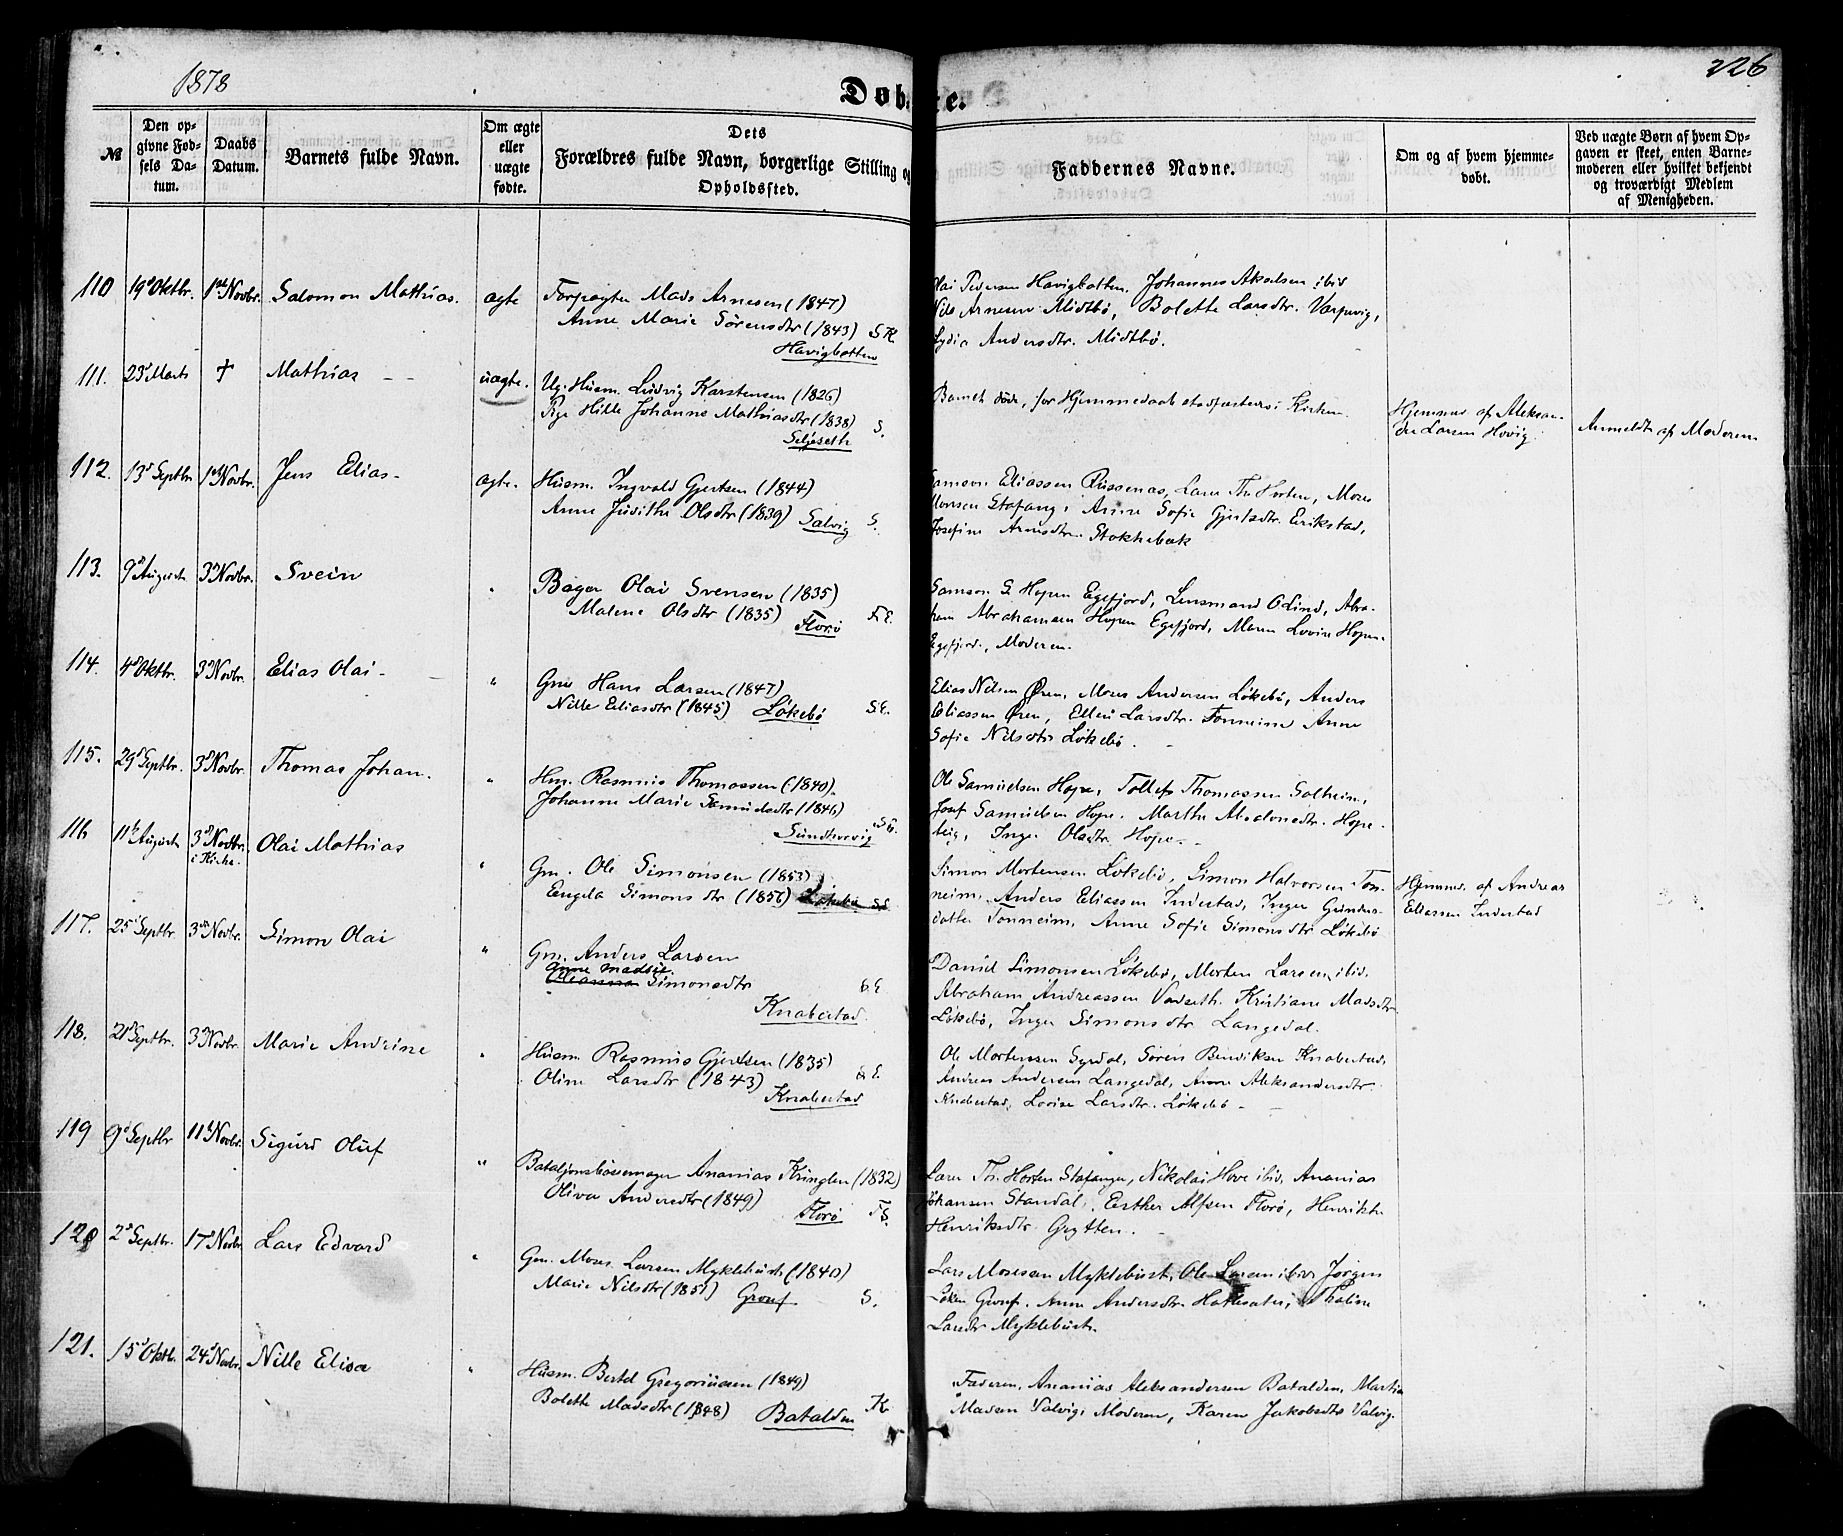 1878
Døbte.
226
№
Den op-
givne Fød-
sels Da-
tum.
Daabs
Datum.
Barnets fulde Navn.
Om ægte
eller
uægte
fødte.
Dets
Forældres fulde Navn, borgerlige Stilling og
Opholdssted.
Faddernes Navne.
Om og af hvem hjemme-
døbt.
Ved uægte Børn af hvem Op-
gaven er skeet, enten Barne-
moderen eller hvilket bekjendt
og troværdigt Medlem
af Menigheden.
110 19d Oktbr. 1ste Novbr. Salomon Mathias. ægte
Forpagter Mads Arnesen (1847)
Anne Marie Sörensdtr (1843) S K.
Havigbotten
Olai Pedersen Havigbotten, Johannes Akselsen ibid
Nils Arnesen Midtbö, Bolette Larsdtr. Varpevig,
Lydia Andersdtr. Midtbö.
111. 23d Marts † Mathias uægte.
Ug. Husm. Ludvig Karstensen (1826)
Pge Hille Johanne Mathiasdtr (1838) S.
Seljeseth
Barnet döde, för Hjemmedaab stadfæstedes i Kirken
Hjemmed. af Aleksan-
der Larsen Hovig.
Anmeldt af Moderen
112. 13d Septbr 1ste Novbr. Jens Elias- ægte.
Husm. Ingvald Gjertsen (1844)
Anne Judithe Olsdtr (1839) Salvig S.
Samson Eliassen Russenas, Lars Th. Horten, Moses
Monsen Stafang, Anne Sofie Gjertsdtr. Erikstad,
Josefine Arnesdtr. Stokkebæk
113. 9d August 3d Novbr. Svein "
Bager Olai Svensen (1835)
Malene Olsdtr (1835) F. E.
Florö
Samson S. Hopen Egefjord, Lensmand O Lind, Abra-
ham Abrahamsen Hopen Egefjord, Maren Lovise Hopen
Egefjord, Moderen.
114. 4d Oktbr. 3d Novbr. Elias Olai- "
Gm Hans Larsen (1847)
Nille Eliasdtr (1845) Lökebö S.E.
Elias Nilsen Øren, Moses Andersen Lökebö, Anders
Eliassen Øren, Ellen Larsdtr. Tonneim Anne
Sofie Nilsdtr Lökebö.
115. 29d Septbr. 3d Novbr. Thomas Johan. "
Hm. Rasmus Thomassen (1840).
Johanne Marie Samuelsdtr (1846)
Sundsvovig S E.
Ole Samuelsen Hope, Tollef Thomassen Solheim,
Josef Samuelsen Hope. Marthe Absalonsdtr. Hope-
Inger Olsdtr. Hope.
116 11te August 3d Novbr. Olai Mathias "
i Kirke.
Gm. Ole Simonsen (1853)
Engela Simonsdtr (1856) Lökebö S E
Simon Mortensen Lökebö, Simon Halvorsen Ton-
neim, Anders Eliassen Indestad, Inger Gunders-
datter Tonneim, Anne Sofie Simonsdtr Lökebö
Hjemmed. af Andreas
Eliassen Indestad
117. 25d Septbr. 3die Novbr. Simon Olai "
Gm. Anders Larsen
Anne Madsie.
Simonsdtr S. E.
Knabestad.
Daniel Simonsen Lökebö, Morten Larsen, ibid.
Abraham Andreassen Vadseth. Kristiane Madsdtr
Lökebö, Inger Simonsdtr Langedal.
118. 21d Septbr. 3d Novbr. Marie Andrine "
Husm Rasmus Gjertsen (1835)
Oline Larsdtr (1843) S E.
Knabestad
Ole Mortensen Syrdal, Sören Bendiksen Knabestad,
Andreas Andersen Langedal, Anne Aleksandersdtr
Knabestad, Lovise Larsdtr. Lökebö -
119 9d Septbr 11te Novbr. Sigurd Oluf "
Bataljonsbössemager Ananias Kringlen (1832)
Oliva Andersdtr (1849)
Florö F E.
Lars Th. Horten Stafanger, Nikolai Hove ibid, Ananias
Johansen Standal, Esther Alfsen Florö, Henrikte
Henriksdtr. Grytten.
120 2d Septbr. 17d Novbr Lars Edvard "
Gm. Moses Larsen Myklebust (1840)
Marie Nilsdtr (1851) Grouf S.
Lars Mosesen Myklebust, Ole Larsen ibid, Jörgen
Loken Grouf. Anne Andersdtr. Hattesæter, Thaline
Larsdtr Myklebust.
121. 15d Oktb. 24d Novbr. Nille Elisa "
Husm. Bertel Gregoriussen (1849)
Bolette Madsdtr (1848) Batalden K
Faderen, Ananias Aleksandersen Batalden, Martin
Madsen Valvig, Moderen, Karen Jakobsdtr Valvig.